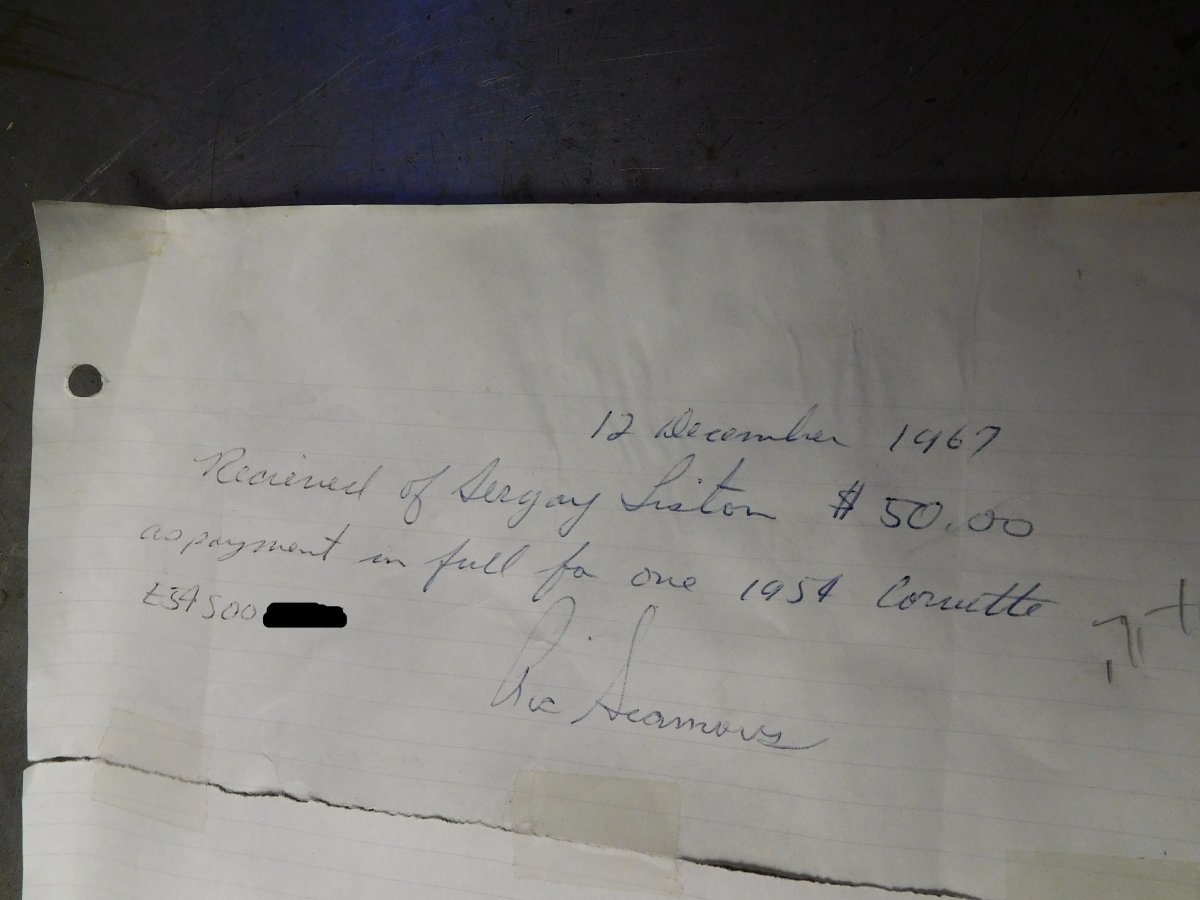 12 December 1967
Recieved of Sergay Liston $50.00
as payment in full for one 1954 Corvette
E54S00
Ric